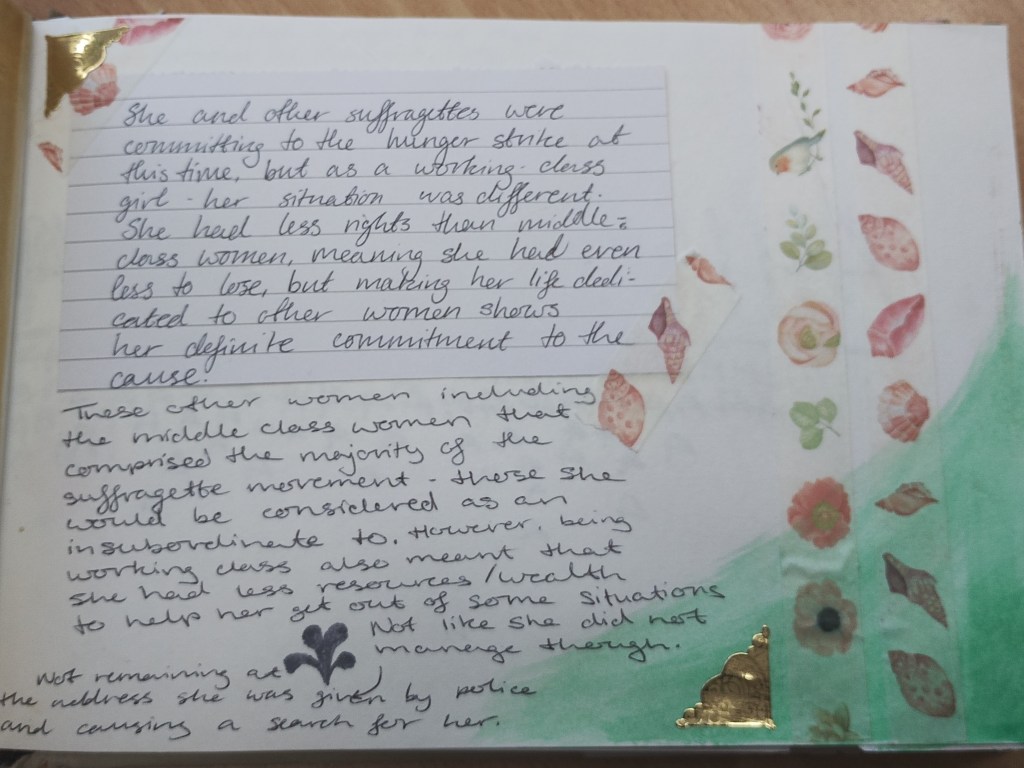 She and other suffragettes were
committing to the hunger strike at
this time, but as a working-class
girl - her situation was different.
She had less rights than middle-
class women, meaning she had even
less to lose, but making her life dedi-
cated to other women shows
her definite commitment to the
cause.
These other women including
the middle class women that
comprised the majority of the
suffragette movement - those she
would be considered as an
insubordinate to. However, being
working class also meant that
she had less resources/wealth
to help her get out of some situations
Not like she did not
manage though.
Not remaining at
the address she was given by police
and causing a search for her.